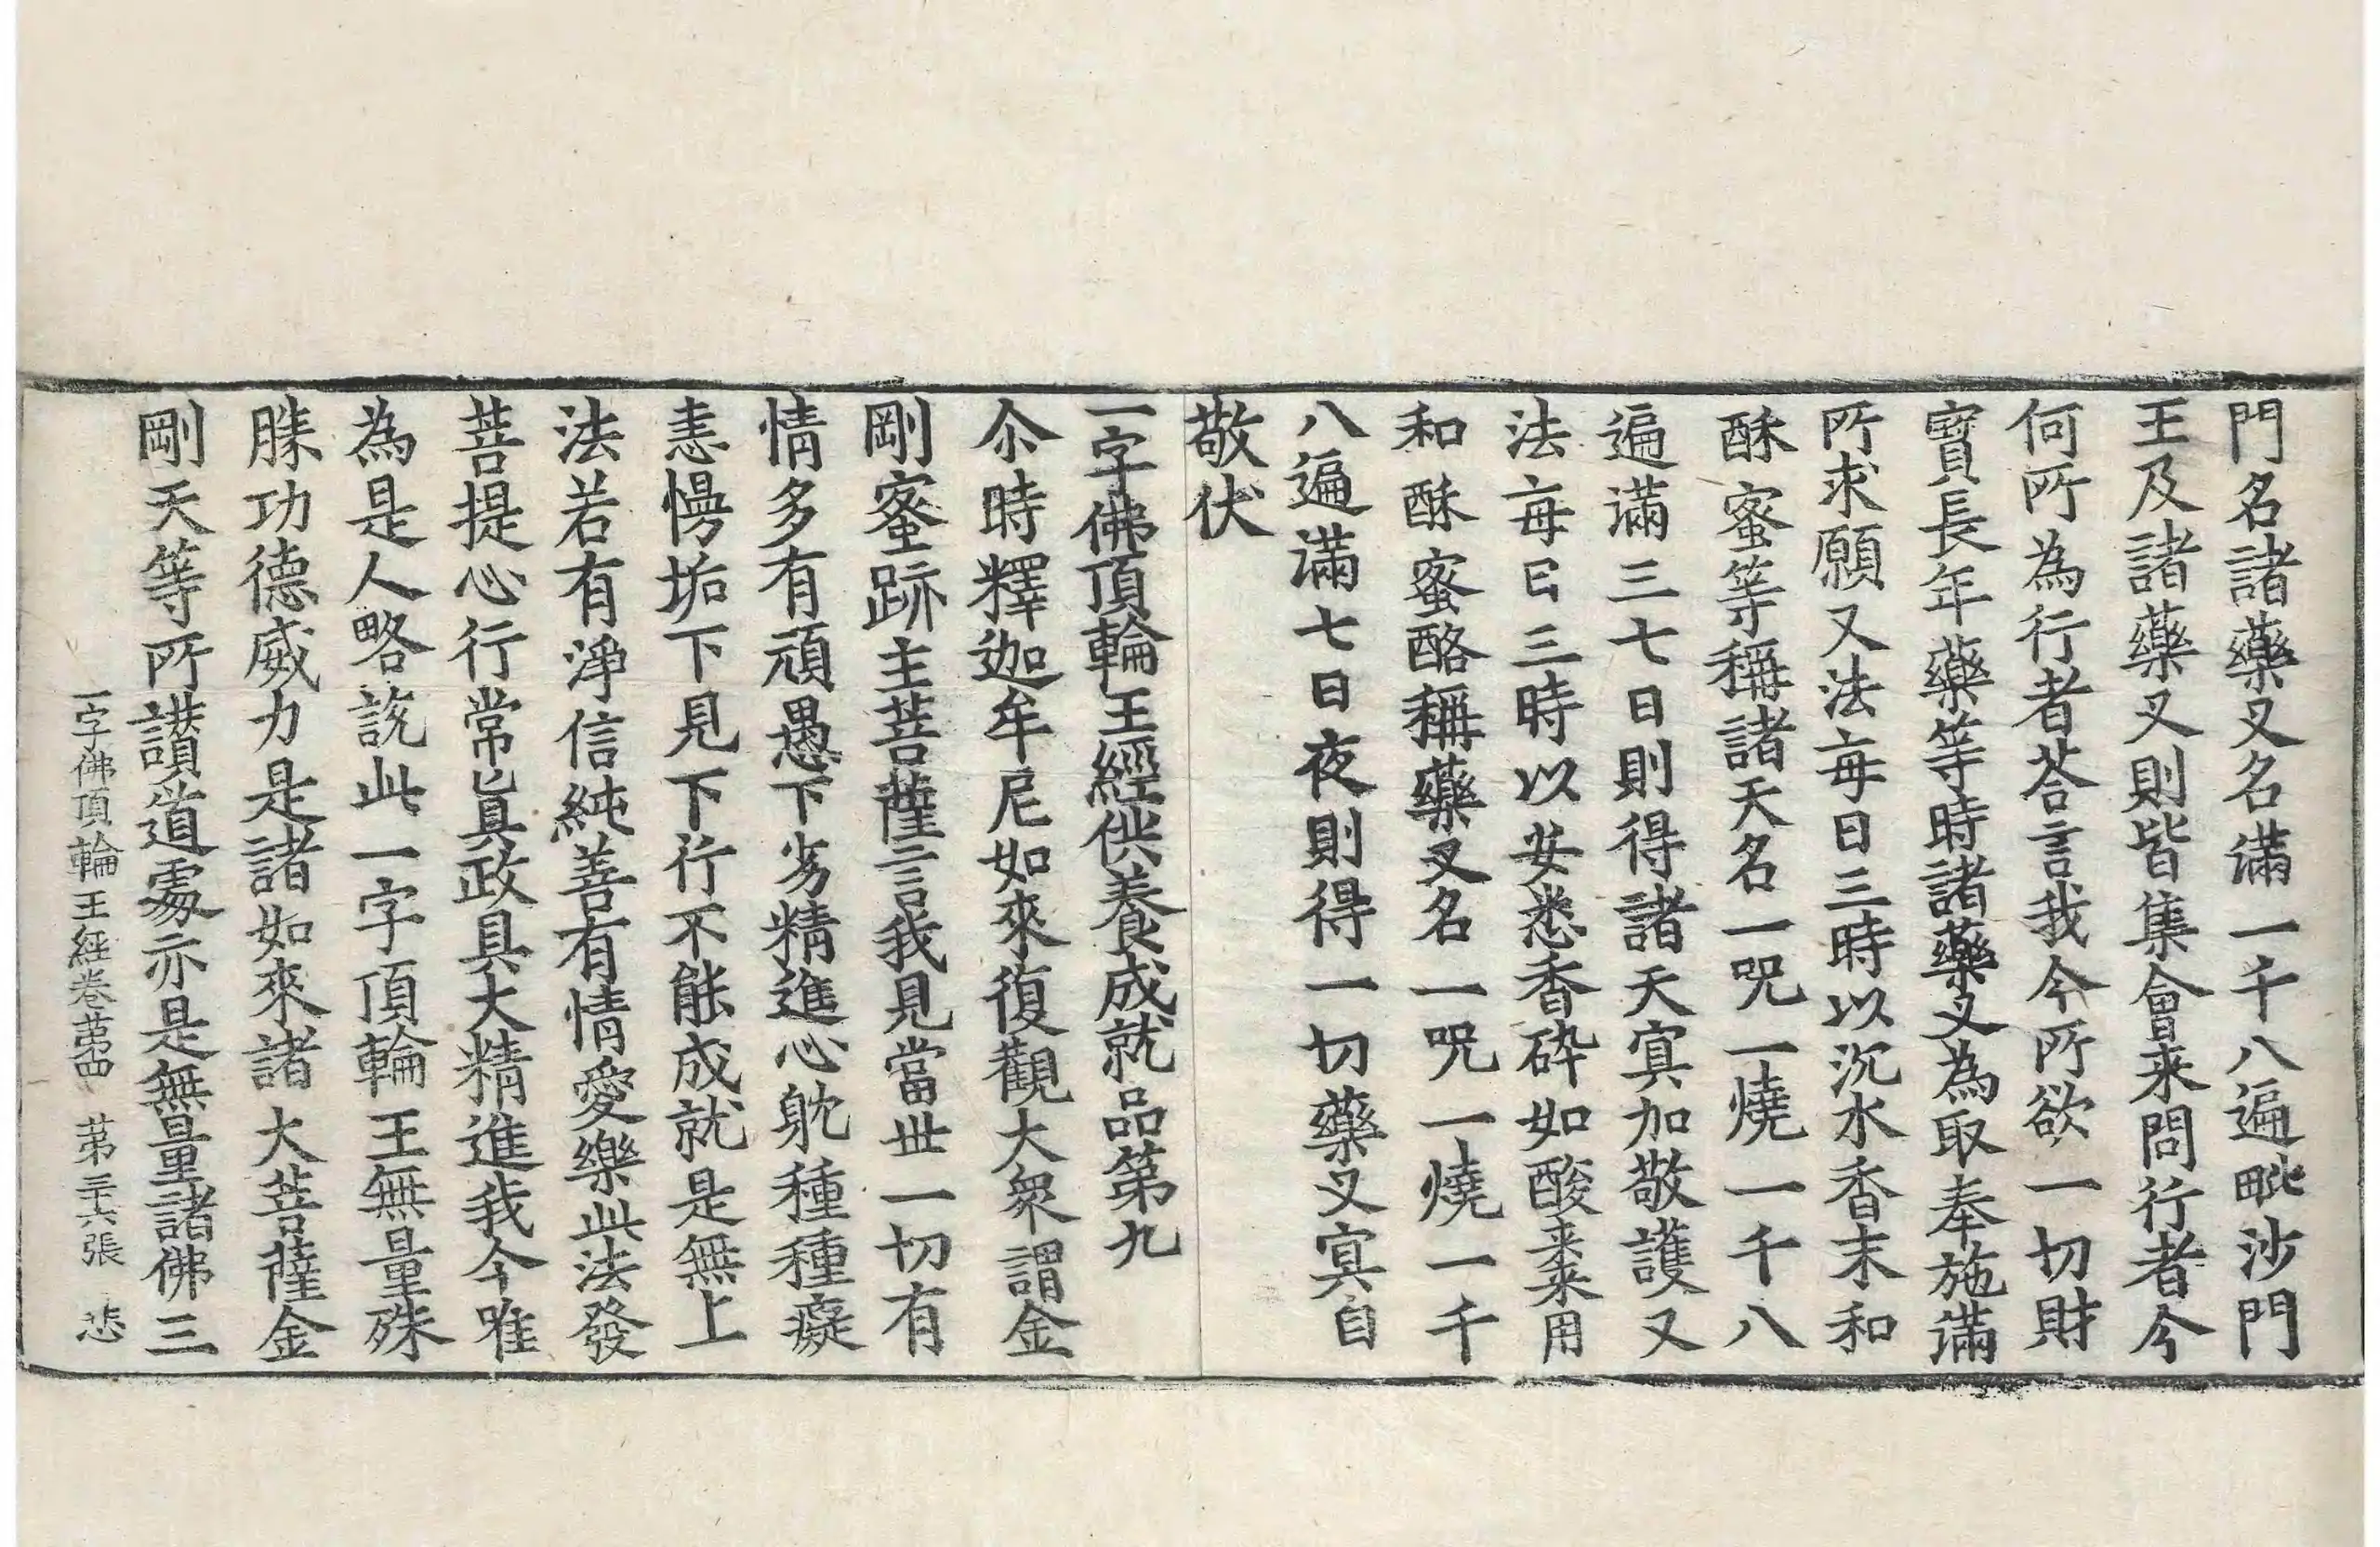 門名諸藥叉名滿一千八遍毗沙門
王及諸藥叉則皆集會来問行者今
何所為行者荅言我今所欲一切財
寶長年藥等時諸藥叉為取奉施滿
所求願又法每日三時以沉水香末和
酥蜜等稱諸天名一呪一燒一千八
遍滿三七日則得諸天㝠加敬護又
法每日三時以安悉香碎如酸棗用
和酥蜜酪稱藥叉名一呪一燒一千
八遍滿七日夜則得一切藥叉㝠自
敬伏
一字佛頂輪王經供養成就品第九
尒時釋迦牟尼如來復觀大衆謂金
剛蜜跡主菩薩言我見當世一切有
情多有頑愚下劣精進心躭種種癡
恚慢垢下見下行不能成就是無上
法若有淨信純善有情愛樂此法發
菩提心行常眞政具大精進我今唯
為是人略說此一字頂輪王無量殊
勝功德威力是諸如來諸大菩薩金
剛天等所讃噵處亦是無量諸佛三
一字佛頂輪王經卷苐四 苐三十六張 悲